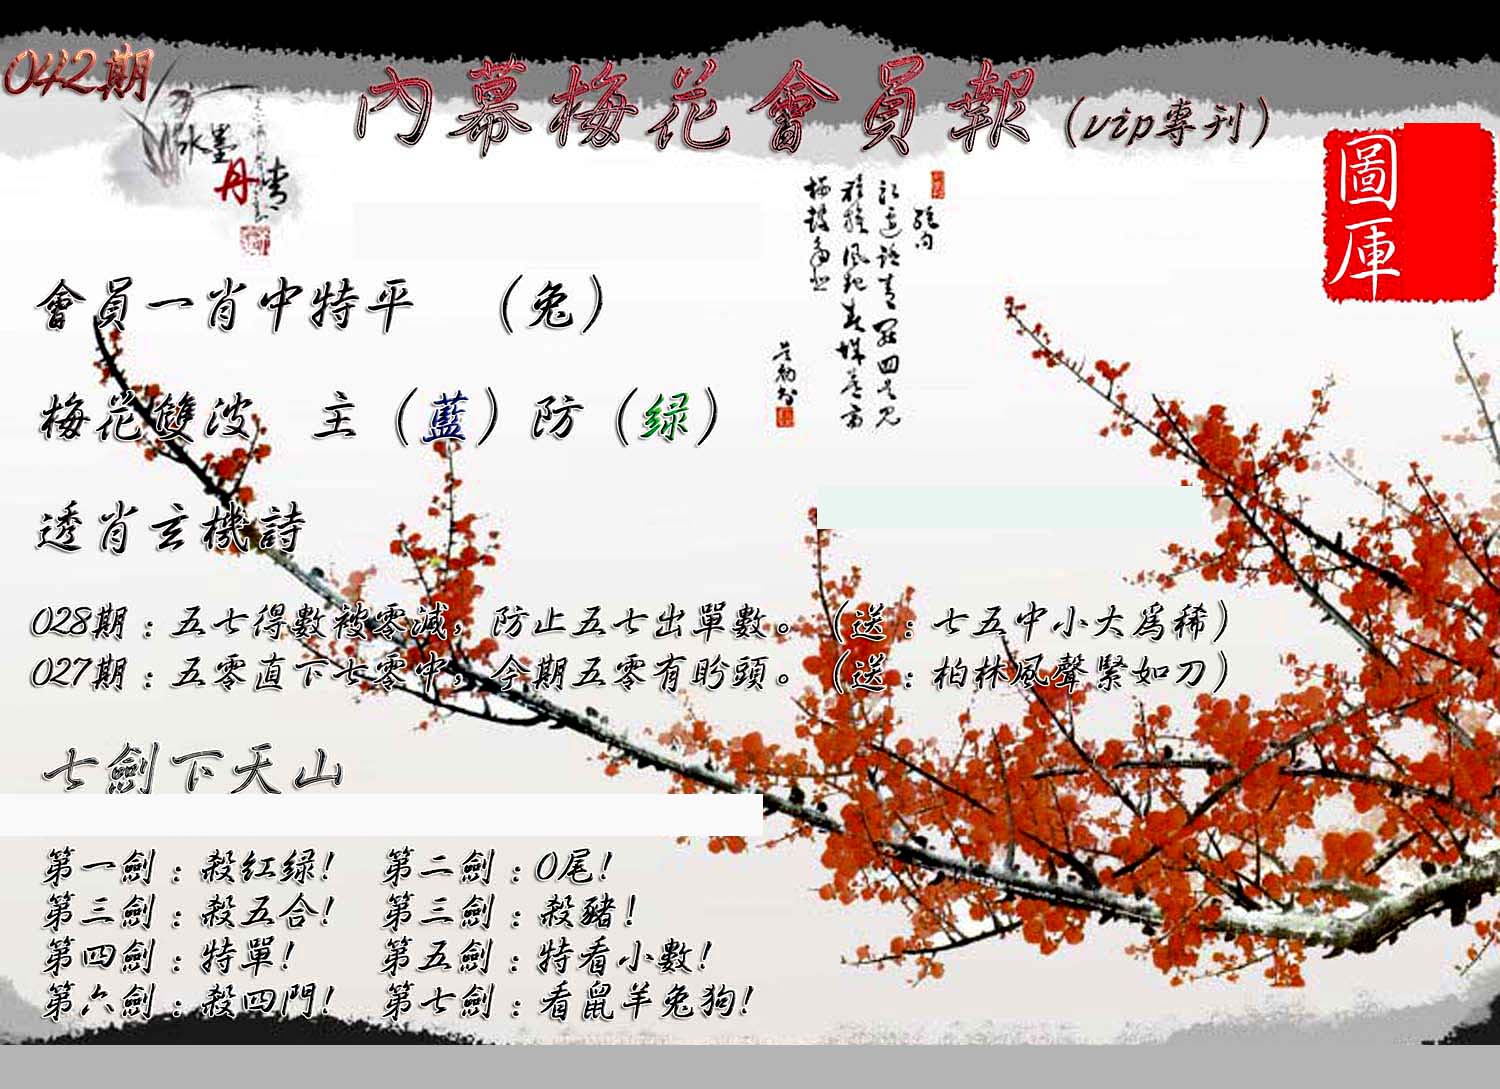 042期
內幕梅花會員報（vip專刊）
水墨
丹青
圖庫
會員一肖中特平　（兔）
梅花雙波　主（藍）防（绿）
透肖玄機詩
028期：五七得數被零減，防止五七出單數。（送：七五中小大爲稀）
027期：五零直下七零中，今期五零有盼頭。（送：柏林風聲緊如刀）
七劍下天山
第一劍：殺红绿！　第二劍：0尾！
第三劍：殺五合！　第三劍：殺豬！
第四劍：特單！　第五劍：特看小數！
第六劍：殺四門！　第七劍：看鼠羊兔狗！